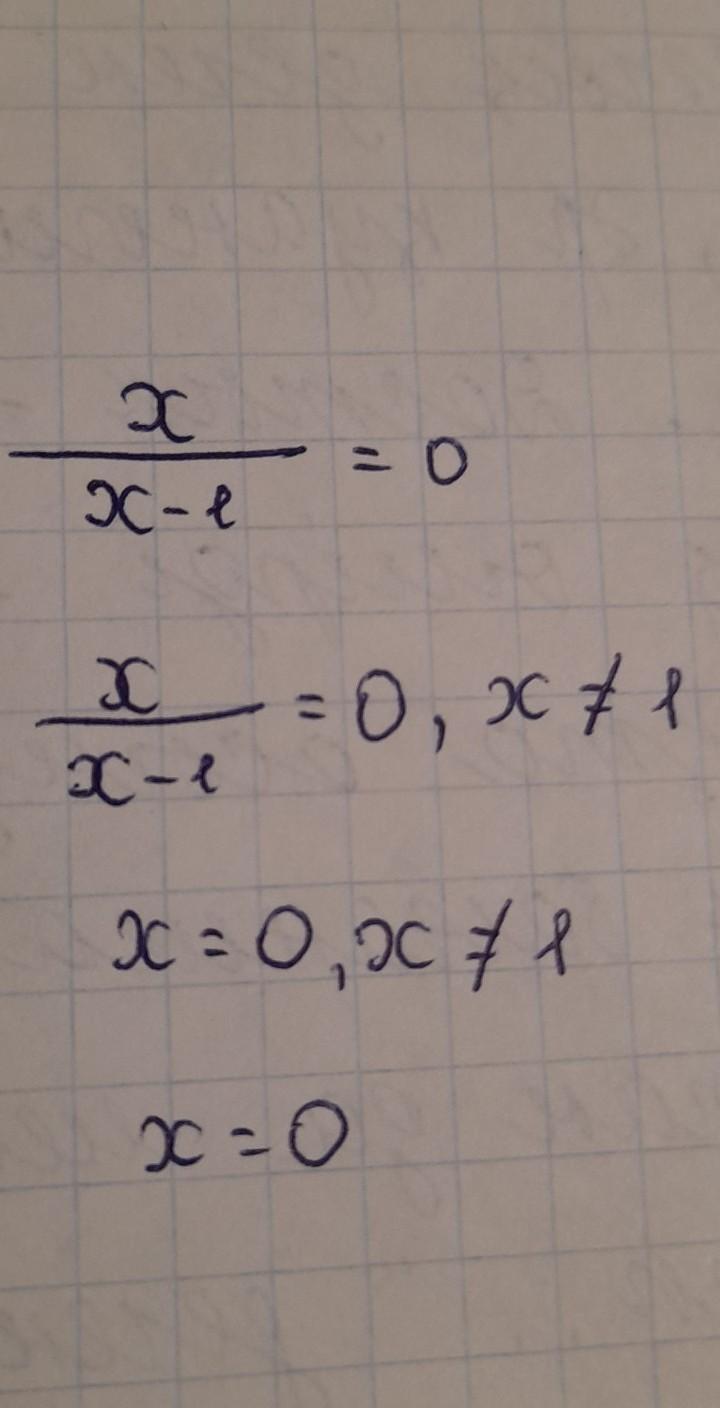 x/(x-1) = 0
x/(x-1) = 0, x ≠ 1
x = 0, x ≠ 1
x = 0